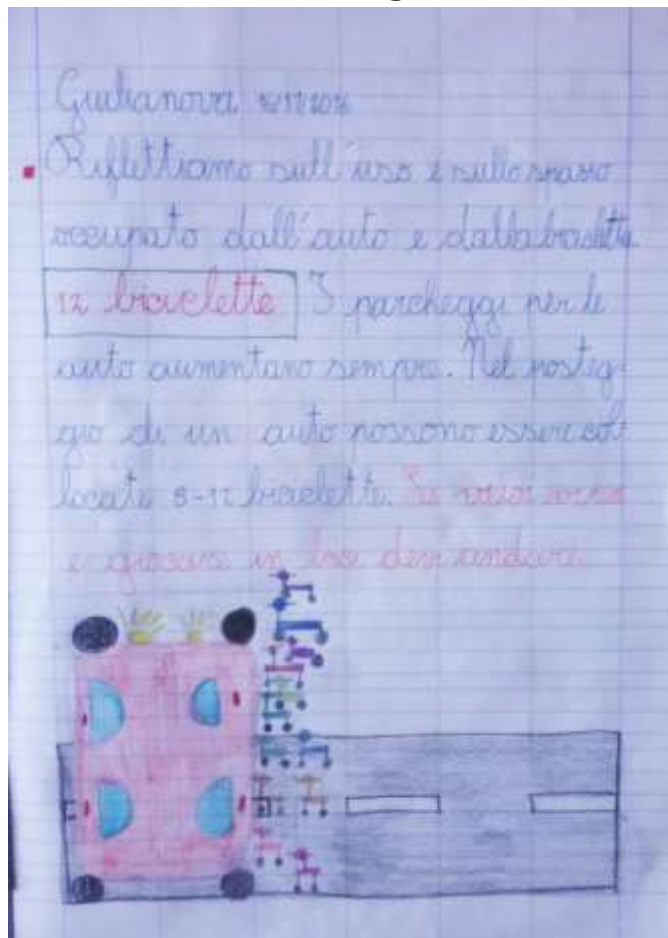 Giulianova
Riflettiamo sull'uso e sullo spazio
occupato dall'auto e dalla bicicletta
12 biciclette I parcheggi per le
auto aumentano sempre. Nel posteg-
gio di un auto possono essere col
locate 8-12 biciclette. Se vuoi
e giocare in bici devi andare